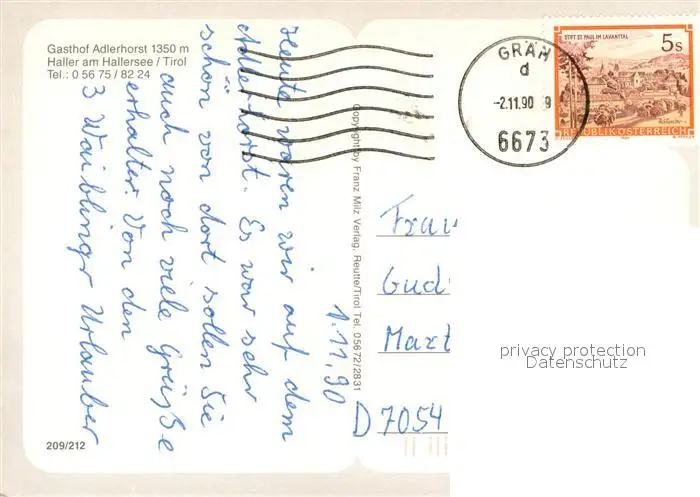 Gasthof Adlerhorst 1350 m
Haller am Hallersee / Tirol
Tel.: 0 56 75 / 82 24
1.11.90
Heute waren wir auf dem
Adlerhorst. Es war sehr
schön von dort sollen Sie
auch noch viele Grüße
erhalten. Von den
3 Waiblingr Urlauber
209/212
Copyright by Franz Milz Verlag, Reutte/Tirol Tel. 05672/2831
GRÄN
d
-2.11.90 9
6673
STIFT ST. PAUL IM LAVANTTAL
5s
REPUBLIK ÖSTERREICH
Frau
Gud
Mart
D 7054
privacy protection
Datenschutz